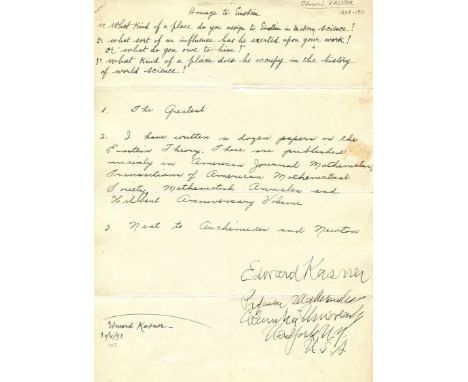 Edward KASNER
1878-1955
Homage to Einstein
1º What kind of a place do you assign to Einstein in modern science?
2º what sort of an influence has he exerted upon your work!
or what do you owe to him?
3º what kind of a place does he occupy in the history
of world science!
1. The Greatest
2. I have written a dozen papers on the
Einstein Theory. These are published
mainly in American Journal Mathematics,
Transactions of American Mathematical
Society, Mathematisch Annalen and
Hilbert Anniversary Volume
3. Next to Archimedes and Newton
Edward Kasner
Professor Mathematics
Columbia University
New York N.Y.
U.S.A
Edward Kasner